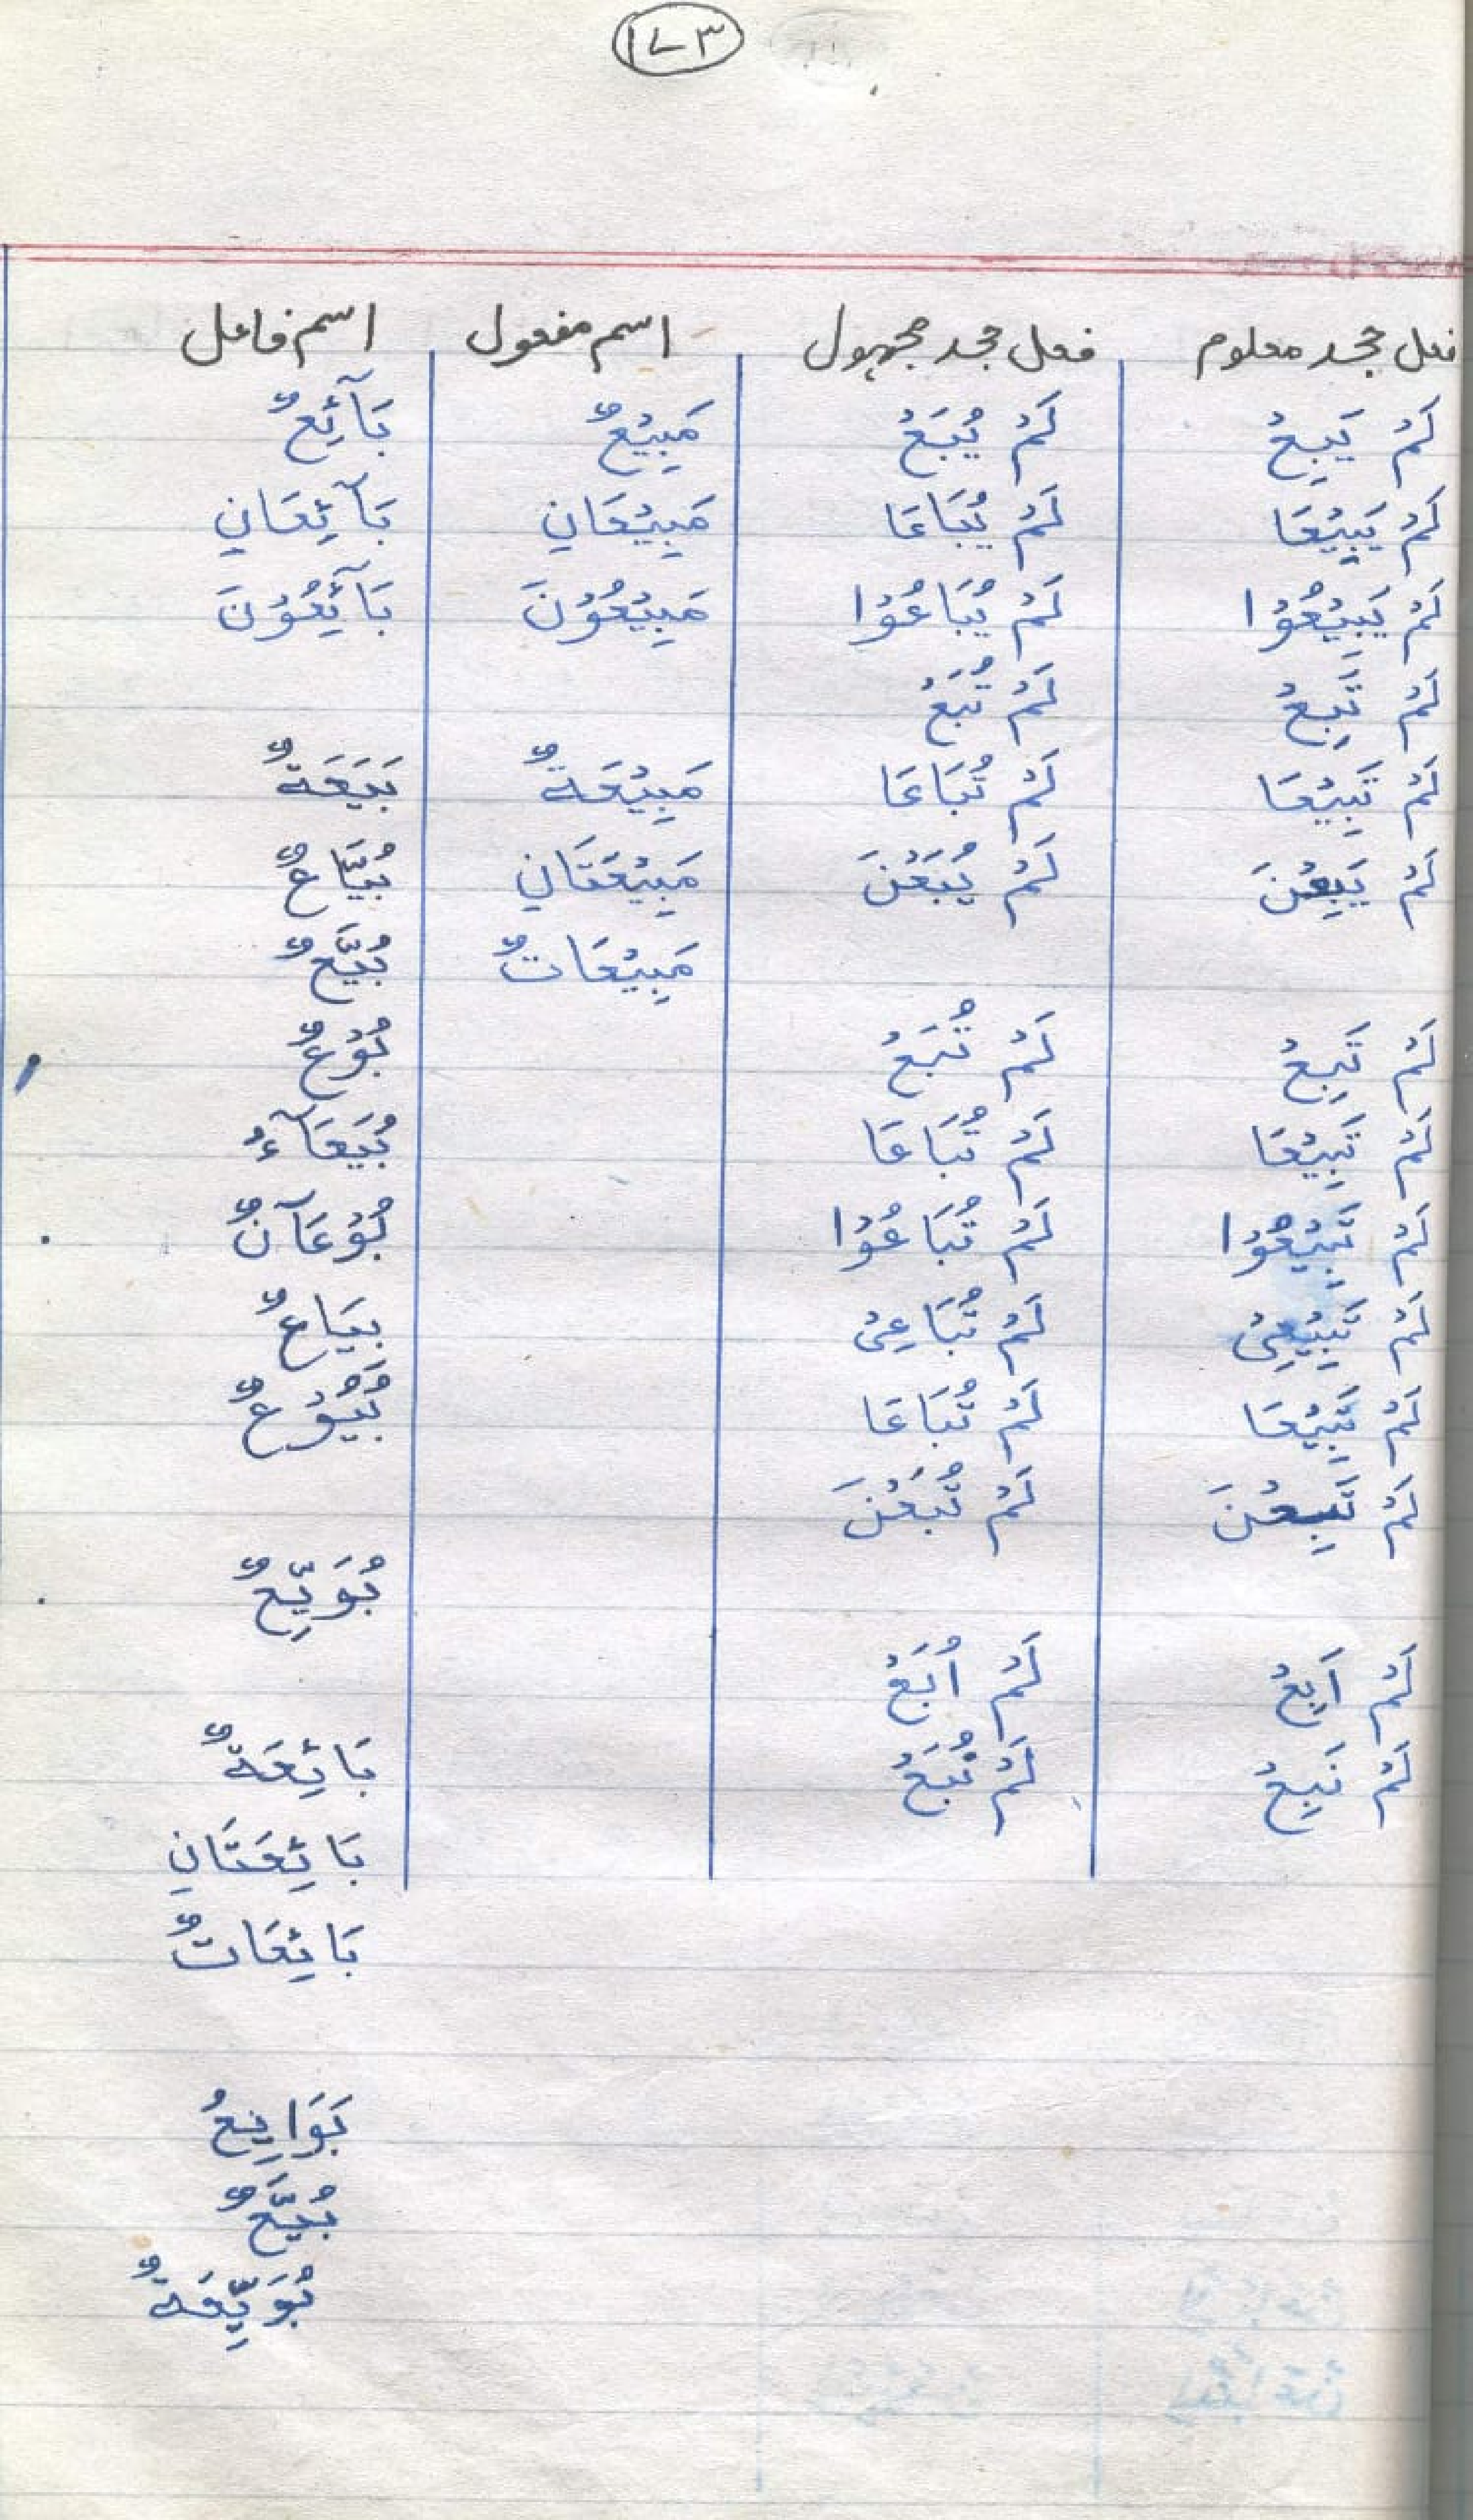 ۱۷۳
فعل جحد معلوم فعل جحد مجہول اسم مفعول اسم فاعل
لَمْ یَبِعْ لَمْ یُبَعْ مَبِیْعٌ بَآئِعٌ
لَمْ یَبِیْعَا لَمْ یُبَاعَا مَبِیْعَانِ بَآئِعَانِ
لَمْ یَبِیْعُوْا لَمْ یُبَاعُوْا مَبِیْعُوْنَ بَآئِعُوْنَ
لَمْ تَبِعْ لَمْ تُبَعْ
لَمْ تَبِیْعَا لَمْ تُبَاعَا مَبِیْعَةٌ بَیَعَةٌ
لَمْ یَبِعْنَ لَمْ یُبَعْنَ مَبِیْعَتَانِ بُیَّاعٌ
مَبِیْعَاتٌ بُیَّعٌ
لَمْ تَبِعْ لَمْ تُبَعْ بُوْعٌ
لَمْ تَبِیْعَا لَمْ تُبَاعَا بُیَعَآءُ
لَمْ تَبِیْعُوْا لَمْ تُبَاعُوْا بُوْعَآنٌ
لَمْ تَبِیْعِیْ لَمْ تُبَاعِیْ بیَاعٌ
لَمْ تَبِیْعَا لَمْ تُبَاعَا بُیُوْعٌ
لَمْ تَبِعْنَ لَمْ تُبَعْنَ
بُوَیِّعٌ
لَمْ اَبِعْ لَمْ اُبَعْ
لَمْ نَبِعْ لَمْ نُبَعْ بَائِعَةٌ
بَائِعَتَانِ
بَائِعَاتٌ
بَوَایِعُ
بُیَّعٌ
بُوَیِّعَةٌ